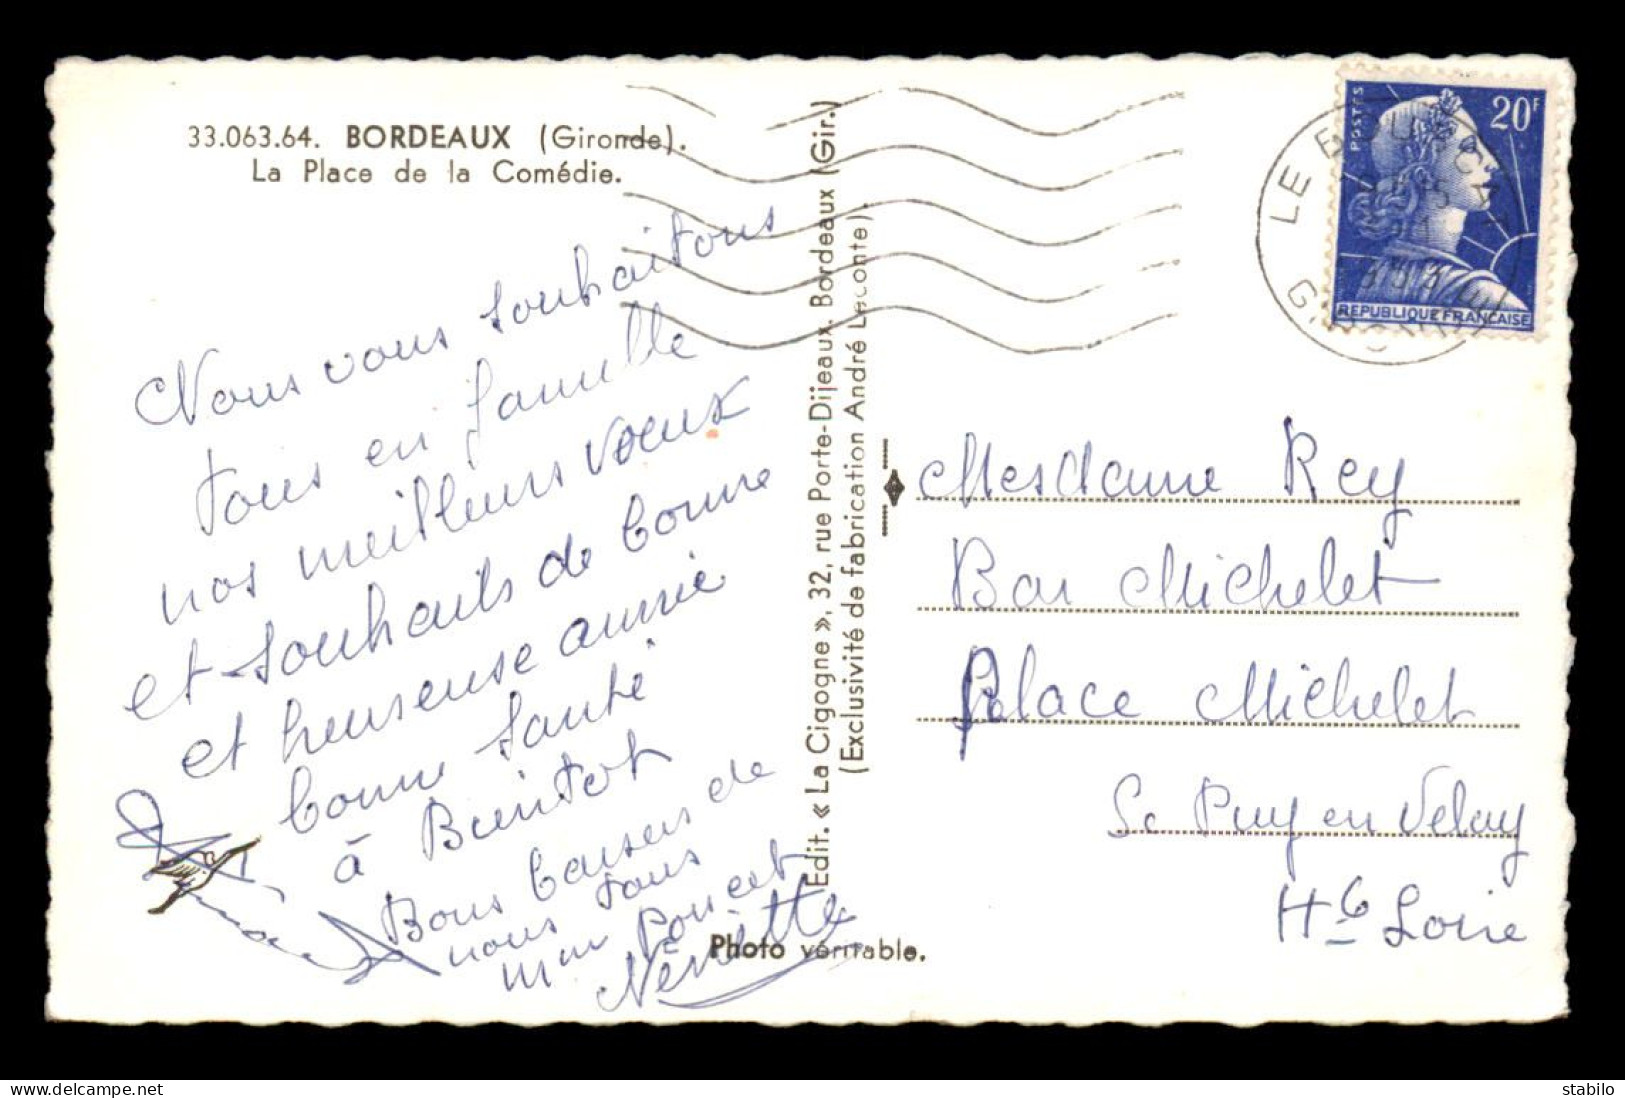 33.063.64. BORDEAUX (Gironde).
La Place de la Comédie.
Nous vous souhaitons
tous en famille
nos meilleurs vœux
et souhaits de bonne
et heureuse année
bonne santé
à Bientot
Bons baisers de
nous tous
Mme Poncet
Edit. « La Cigogne », 32, rue Porte-Dijeaux. Bordeaux (Gir.)
(Exclusivité de fabrication André Leconte).
Photo véritable.
POSTES
20F
REPUBLIQUE FRANÇAISE
LE BOUSCAT
GIRONDE
Mesdame Rey
Bar Michelet
Place Michelet
Le Puy en Velay
Hte Loire
stabilo